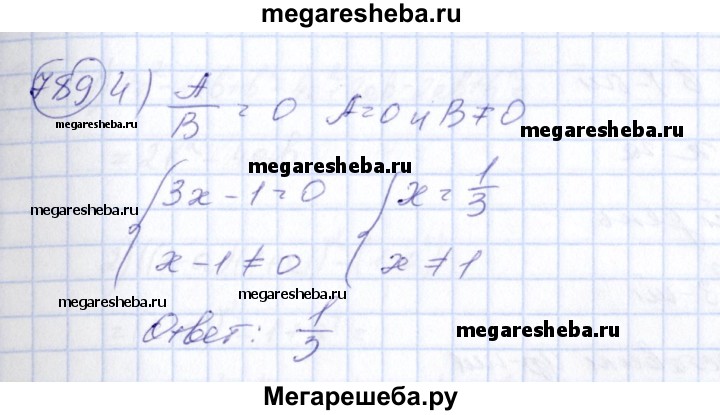 megaresheba.ru
789 4) A/B = 0 A=0 и B≠0
megaresheba.ru megaresheba.ru
megaresheba.ru
{3x-1=0 {x=1/3
megaresheba.ru
x-1≠0 x≠1
megaresheba.ru megaresheba.ru
Ответ: 1/3 megaresheba.ru
Мегарешеба.ру